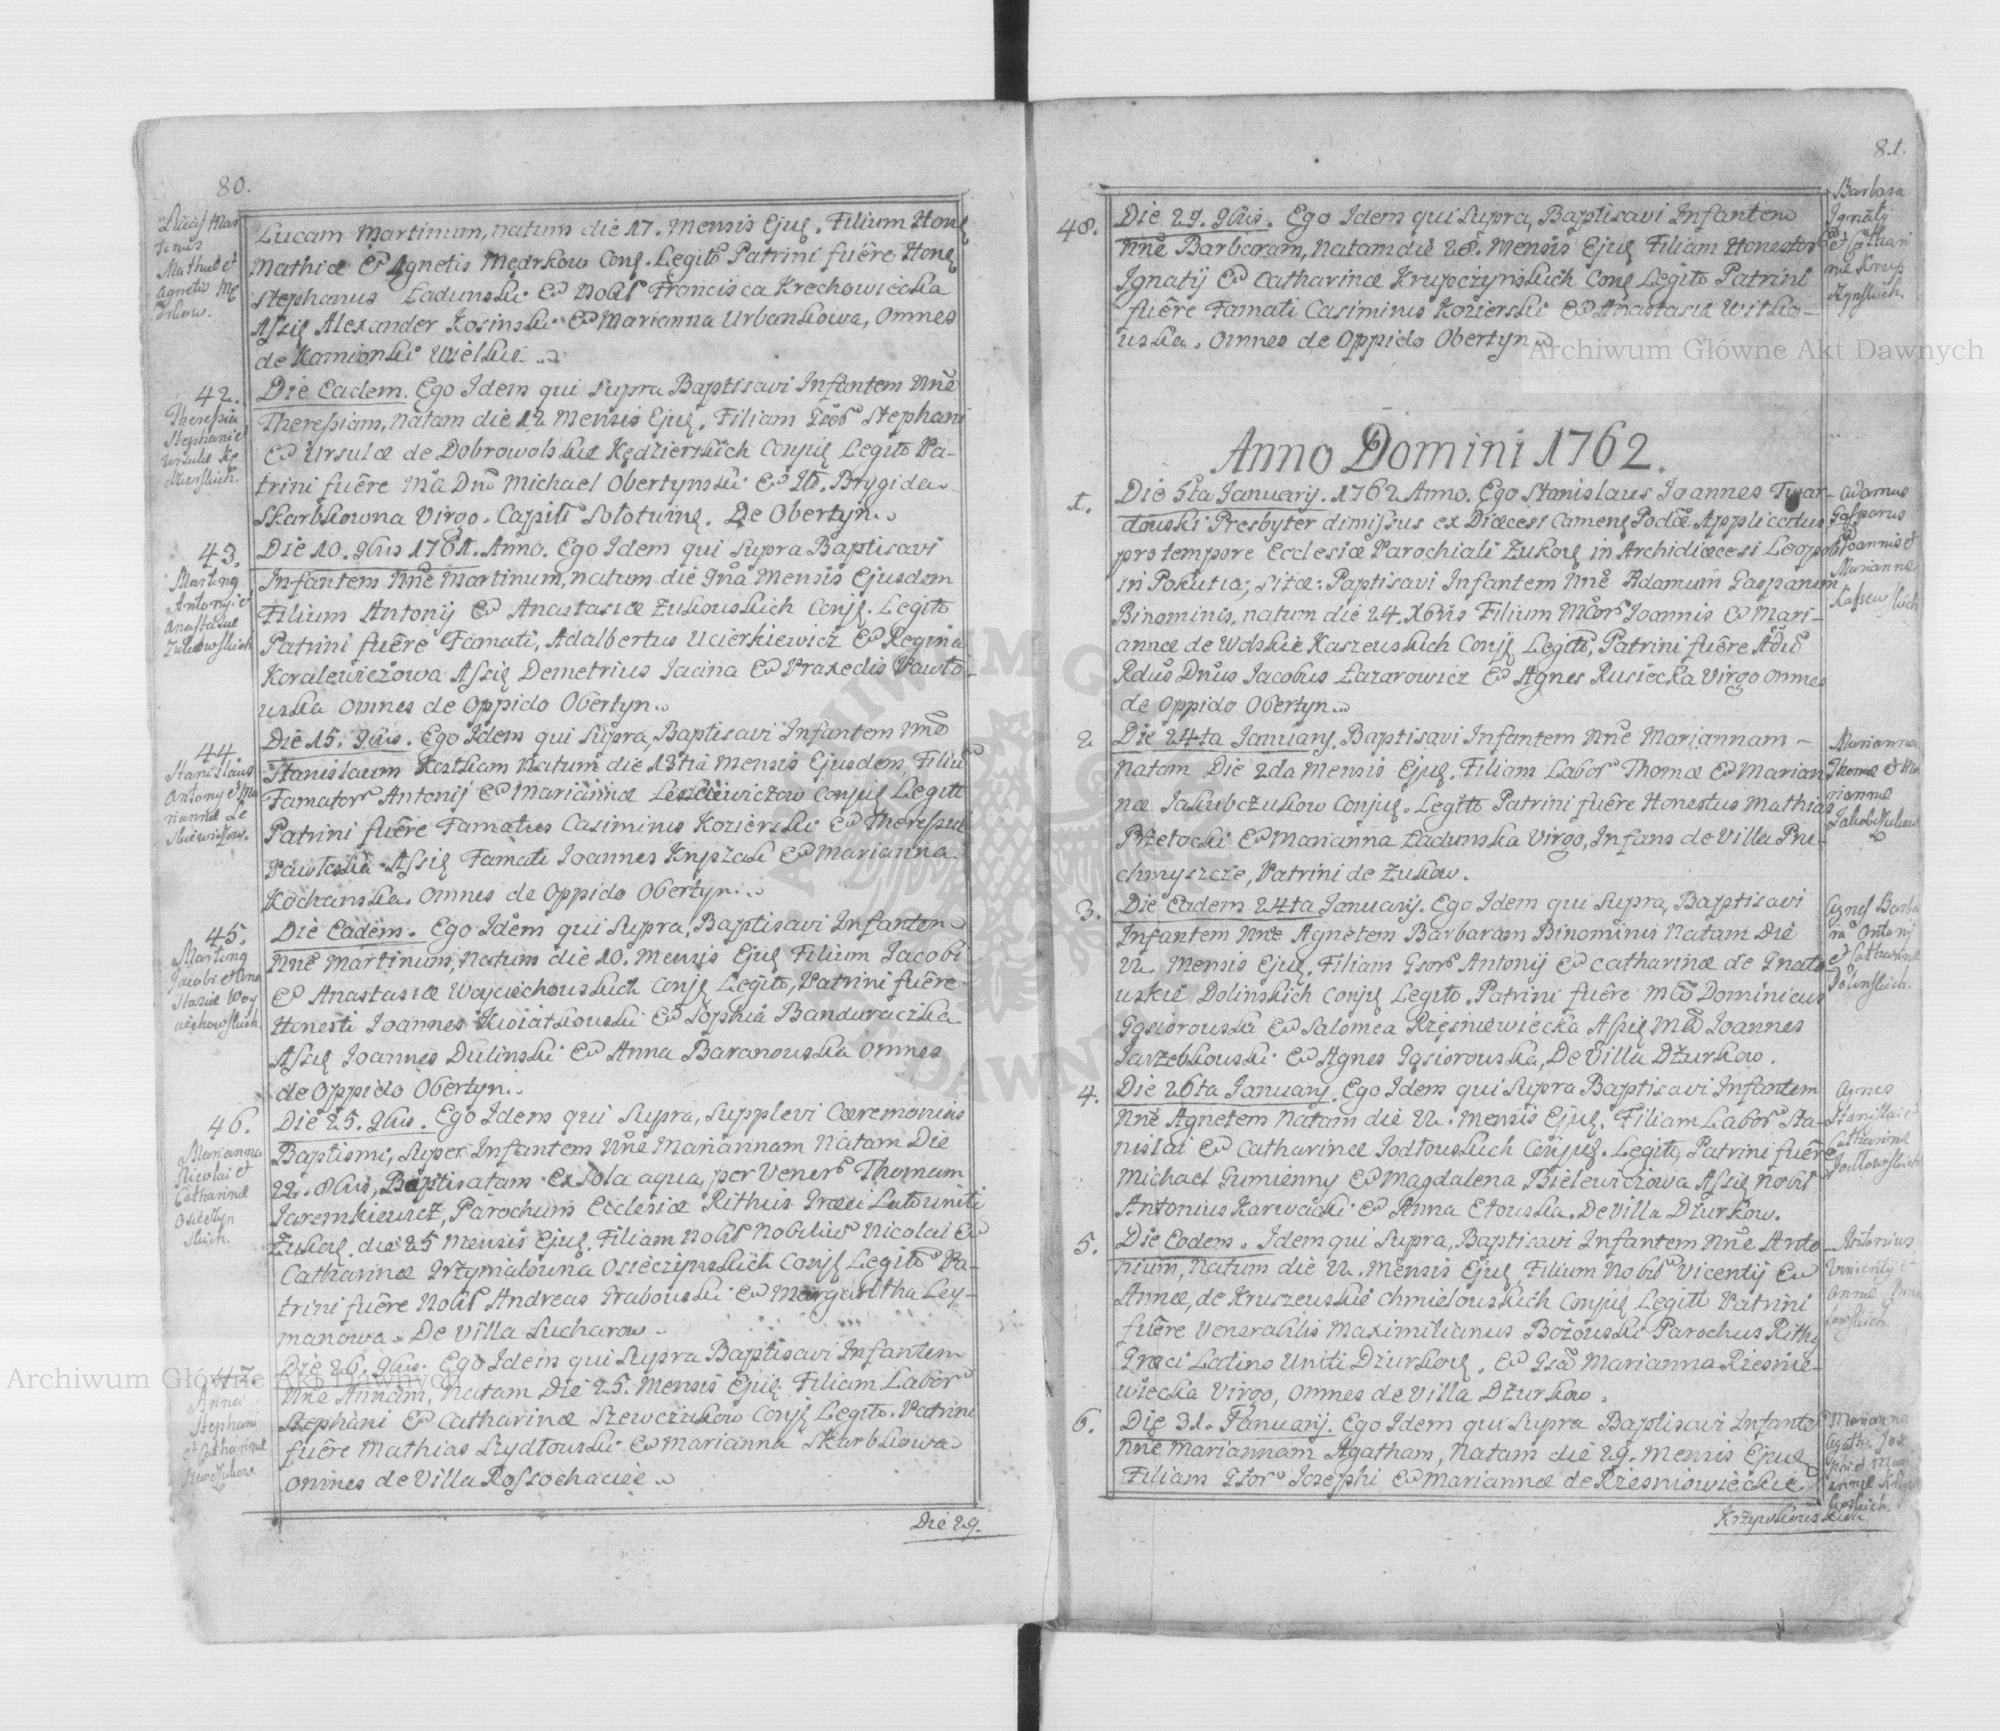 80.
Lucas Mar
tinus
Mathiæ et
Agnetis Mę
drkow.
Lucam Martinum, natum die 17. Mensis Ejuę. Filium Honę
Mathiæ & Agnetis Mędrkow Conę. Legito Patrini fuêre Honę
Stephanus Ładunski & Nobil Francisca Krechowiecka
Assię Alexander Kosinski & Marianna Urbankowa, Omnes
de Kamionki Wielkie.
42.
Theressia
Stephani et
Ursulæ Kę
dzierskich.
Die Eadem. Ego Idem qui supra Baptisavi Infantem Nnê
Theressiam, Natam die 12 Mensis Ejuę. Filiam Gsor Stephani
& Ursulæ de Dobrowolskie Kędzierskich Conjuę Legito Pa-
trini fuêre Mâ Dnô Michael Obertynski & Brygida
Skarbkowna Virgo. Capit Sołotwinę. De Obertyn.
43.
Martinę
Antonij et
Anastasiæ
Zukowskich
Die 10. 9bris 1761. Anno. Ego Idem qui supra Baptisavi
Infantem Nnê Martinum, natum die 9na Mensis Ejusdem
Filium Antonij & Anastasiæ Zukouskich Conję. Legito
Patrini fuêre Famati, Adalbertus Ucierkiewicz & Regina
Koralewiczowa Assię Demetrius Jacina & Praxedis Pawło-
uska omnes de Oppido Obertyn.
44
Stanislaus
Antony et Ma
riannæ Le
skiewiczow.
Die 15. 9bris. Ego Idem qui supra, Baptisavi Infantem Nnô
Stanislaum Kostkam Natum die 13tia Mensis Ejusdem, Filiu
Famator Antonij & Mariannæ Leskiewiczow Conjuę Legitt
Patrini fuêre Famatus Casimirus Kozierski & Theressia
Pawłoska Assię Famati Joannes Knpzak & Marianna
Kochanska. Omnes de Oppido Obertyn.
45.
Martinę
Jacobi et Ana
stasiæ Woy
ciechowskich
Die Eadem. Ego Idem qui supra, Baptisavi Infantem
Nnê Martinum, natum die 10. Mensis Ejuę Filium Jacobi
& Anastasiæ Woyciechouskich Conję Legito, Patrini fuêre
Honesti Joannes Kwiatkouski & Sophia Banduraczka
Assię Joannes Dulinski & Anna Baranouska Omnes
de Oppido Obertyn.
46.
Marianna
Nicolai et
Catharinæ
Osieczyn
skich.
Die 25. 9bris. Ego Idem qui supra, supplevi Cæremonias
Baptismi, super Infantem Nnê Mariannam Natam Die
22. 8bris, Baptisatam ex sola aqua, per Vener Thomam
Jaremkiewicz, Parochum Ecclesiæ Rithus Græci Lato Uniti
Zukoę. die 25 Mensis Ejuę. Filiam Nobil Nobilium Nicolai &
Catharinæ Grzymałowna Osieczynskich Conję Legito Pa-
trini fuêre Nobil Andreas Grabouski & Margaritha Ley-
manowa. De Villa Sucharow.
47
Anna
Stephani
et Catharinæ
Szewczukow
Die 26. 9bris. Ego Idem qui supra Baptisavi Infantem
Nnê Annam, Natam Die 25. Mensis Ejuę. Filiam Labor
Stephani & Catharinæ Szewczukow Conję Legito. Patrini
fuêre Mathias Szydłouski & Marianna Skarbkowa
Omnes de Villa Rossochacie.
Die 29.
81.
48.
Die 29. 9bris. Ego Idem qui supra, Baptisavi Infantem
Nnê Barbaram, Natam die 28. Mensis Ejuę Filiam Honestor
Ignatij & Catharinæ Krupczynskich Conę Legito Patrini
fuêre Famati Casimirus Kozierski & Anastasia Witko-
uska. Omnes de Oppido Obertyn
Barbara
Ignatij
et Cathari
næ Krup
czynskich.
Anno Domini 1762.
1.
Die 5ta Januarij. 1762 Anno. Ego Stanislaus Joannes Twar-
douski Presbyter dimissus ex Diæcesi Camenę Podoæ Applicatus
pro tempore Ecclesiæ Parochiali Zukoę in Archidiæcesi Leopol
in Pokutia; sitæ: Paptisavi Infantem Nnê Adamum Gasparum
Binominis, natum die 24. Xbris Filium Mcor Joannis & Mari-
annæ de Wolskie Kaszeuskich Conję Legito, Patrini fuêre Adû
Rdûs Dnûs Jacobus Łazarowicz & Agnes Rusiecka Virgo Omnes
de Oppido Obertyn
Adamus
Gasparus
Joannis et
Mariannæ
Kaszewskich
2
Die 24ta January. Baptisavi Infantem Nnê Mariannam -
Natam Die 2da Mensis Ejuę. Filiam Labor Thomæ & Marian
næ Jakubczukow Conjuę. Legito Patrini fuêre Honestus Mathias
Przetocki & Marianna Ładunska Virgo, Infans de Villa Pru-
chmyszcze, Patrini de Zukow.
Marianna
Thomæ et Ma
riannæ
Jakubczukow
3.
Die Eadem 24ta Januarij. Ego Idem qui supra, Baptisavi
Infantem Nnê Agnetem Barbaram Binominis Natam Die
22. Mensis Ejuę. Filiam Gsor Antonij & Catharinæ de Gnato
uskie Dolinskich Conjuę Legito. Patrini fuêre Mcô Dominicus
Gąsiorouski & Salomea Rzęsniewiecka Assię Mcô Joannes
Jarzebkouski & Agnes Gąsiorouska, De Villa Dżurkow.
Agnes Barba
ra Antonij
et Catharinæ
Dolinskich.
4.
Die 26ta January. Ego Idem qui supra Baptisavi Infantem
Nnê Agnetem Natam die 22. Mensis Ejuę. Filiam Labor Sta-
nislai & Catharinæ Jodłouskich Conjuę. Legito, Patrini fuêre
Michael Gumienny & Magdalena Bielewiczowa Assię Nobil
Antonius Karwacki & Anna Etouska. De Villa Dżurkow.
Agnes
Stanislai et
Catharinæ
Jodłowskich
5.
Die Eodem. Idem qui supra, Baptisavi Infantem Nnê Anto
nium, Natum die 22. Mensis Ejuę, Filium Nobil Vicentij &
Annæ, de Kruszeuskie Chmielouskich Conjuę Legitt Patrini
fuêre Venerabilis Maximilianus Bożouski Parochus Rithu
Græci Latino Uniti Dżurkoę, & Gsâ Marianna Rzesnie-
wiecka Virgo, omnes de Villa Dżurkow.
Antonius
Vincentij et
Annæ Chmie
lowskich.
6.
Die 31. Januarij. Ego Idem qui supra Baptisavi Infante
Nnê Mariannam Agatham, Natam die 29. Mensis Ejuę
Filiam Gsor Josephi & Mariannæ de Rzesniowieckie
Marianna
Agatha Jos
ephi et Mari
annæ
Krzywkous
kich
Archiwum Główne Akt Dawnych
Archiwum Główne Akt Dawnych